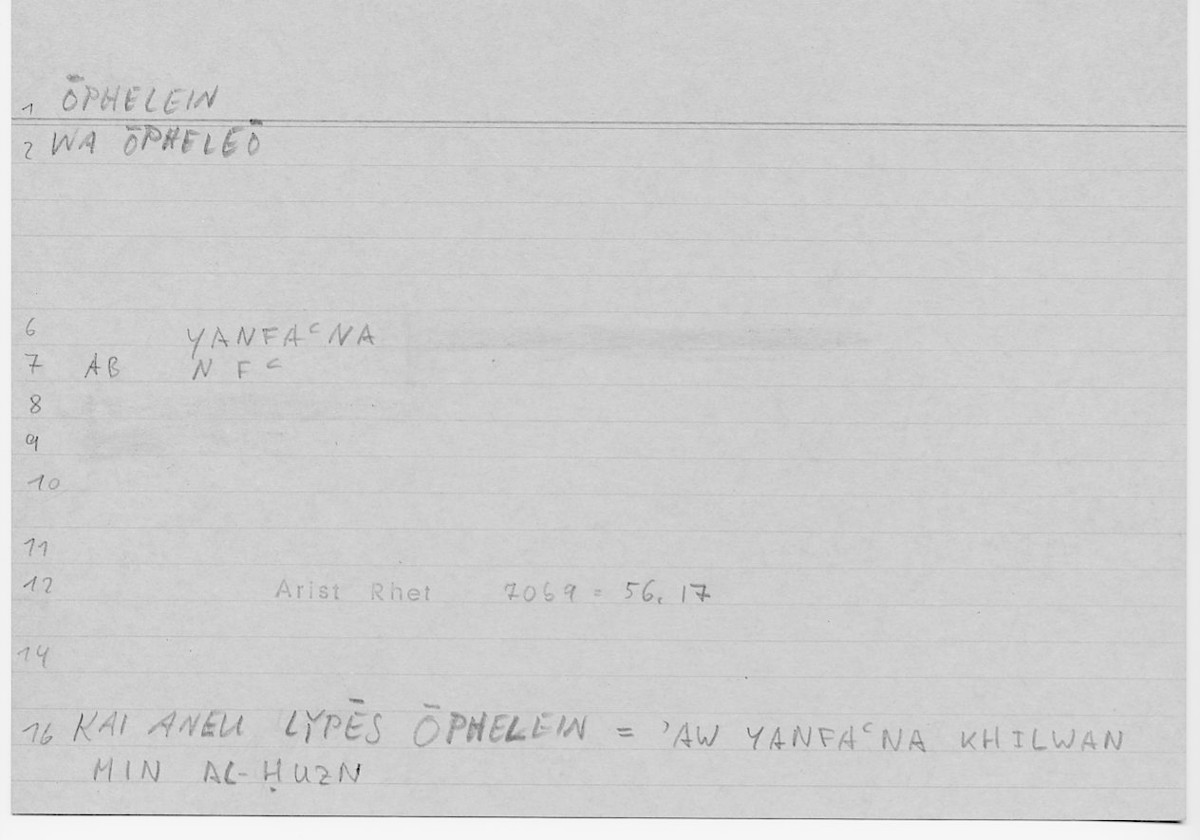 1 ŌPHELEIN
2 WA ŌPHELEŌ
6 YANFAᶜNA
7 AB N F ᶜ
8
9
10
11
12 Arist Rhet 7069 = 56.17
14
16 KAI ANEU LYPĒS ŌPHELEIN = ʾAW YANFAᶜNA KHILWAN
MIN AL-ḤUZN